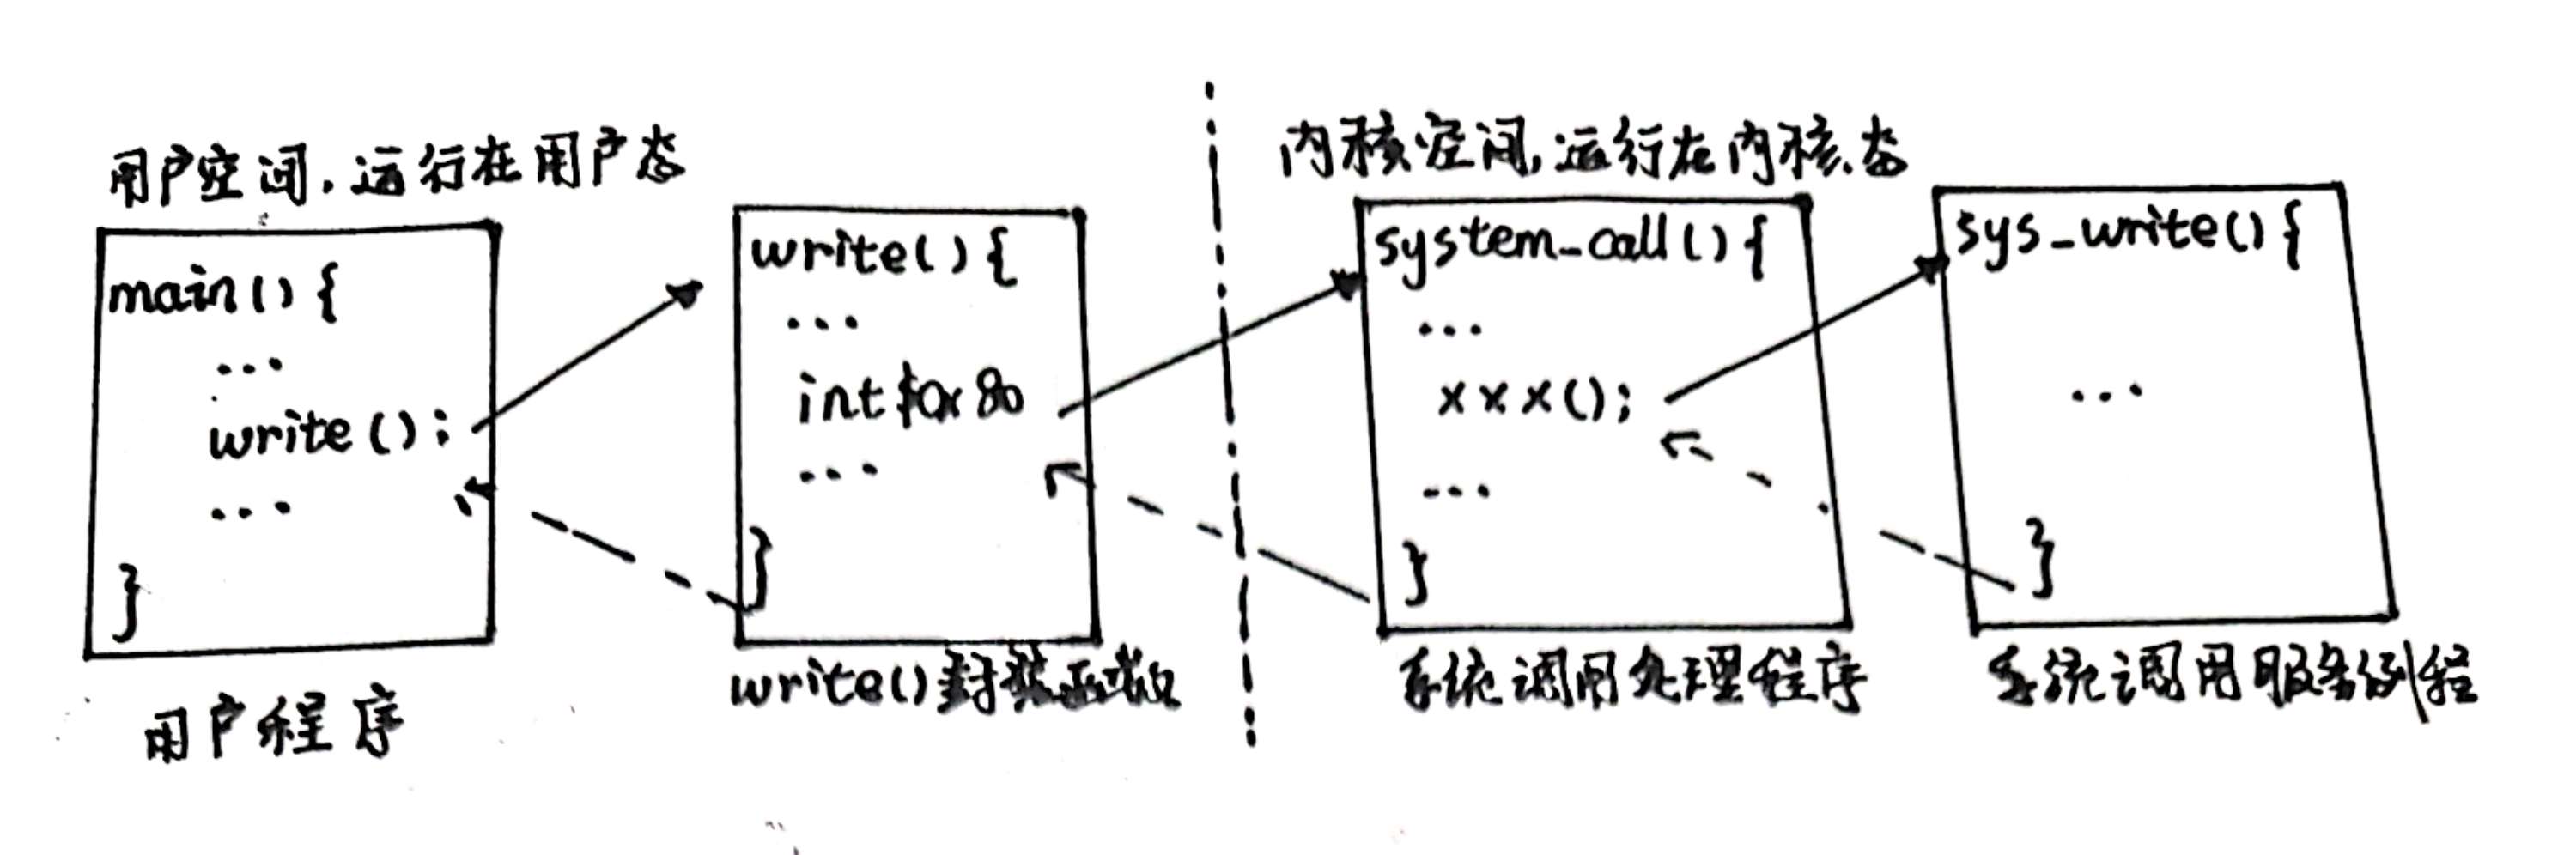 用户空间,运行在用户态
main(){
...
write();
...
}
用户程序
write(){
...
int $0x80
...
}
write()封装函数
内核空间,运行在内核态
system_call(){
...
xxx();
...
}
系统调用处理程序
sys_write(){
...
}
系统调用服务例程